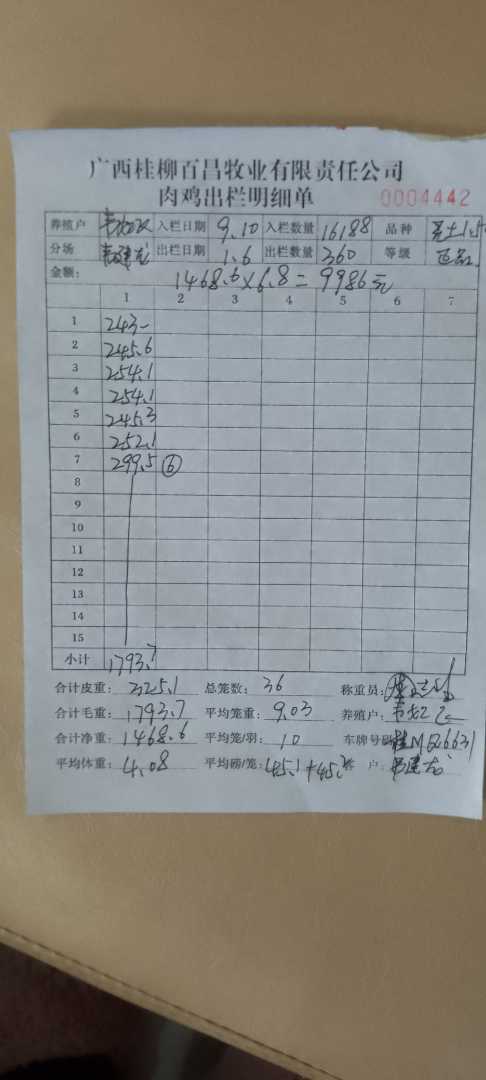 广西桂柳百昌牧业有限责任公司
肉鸡出栏明细单 0004442
养殖户 入栏日期 9.10 入栏数量 16188 品种
分场 出栏日期 1.6 出栏数量 360 等级 正品
金额: 1468.6×6.8=9986元
1 2 3 4 5 6 7
1 243-
2 245.6
3 254.1
4 254.1
5 245.3
6 252.1
7 299.5 ⑥
8
9
10
11
12
13
14
15
小计 1793.7
合计皮重: 325.1 总笼数: 36 称重员:
合计毛重: 1793.7 平均笼重: 9.03 养殖户:
合计净重: 1468.6 平均笼/羽: 10 车牌号码:
平均体重: 4.08 平均磅/笼: 45.1+45. 客户: